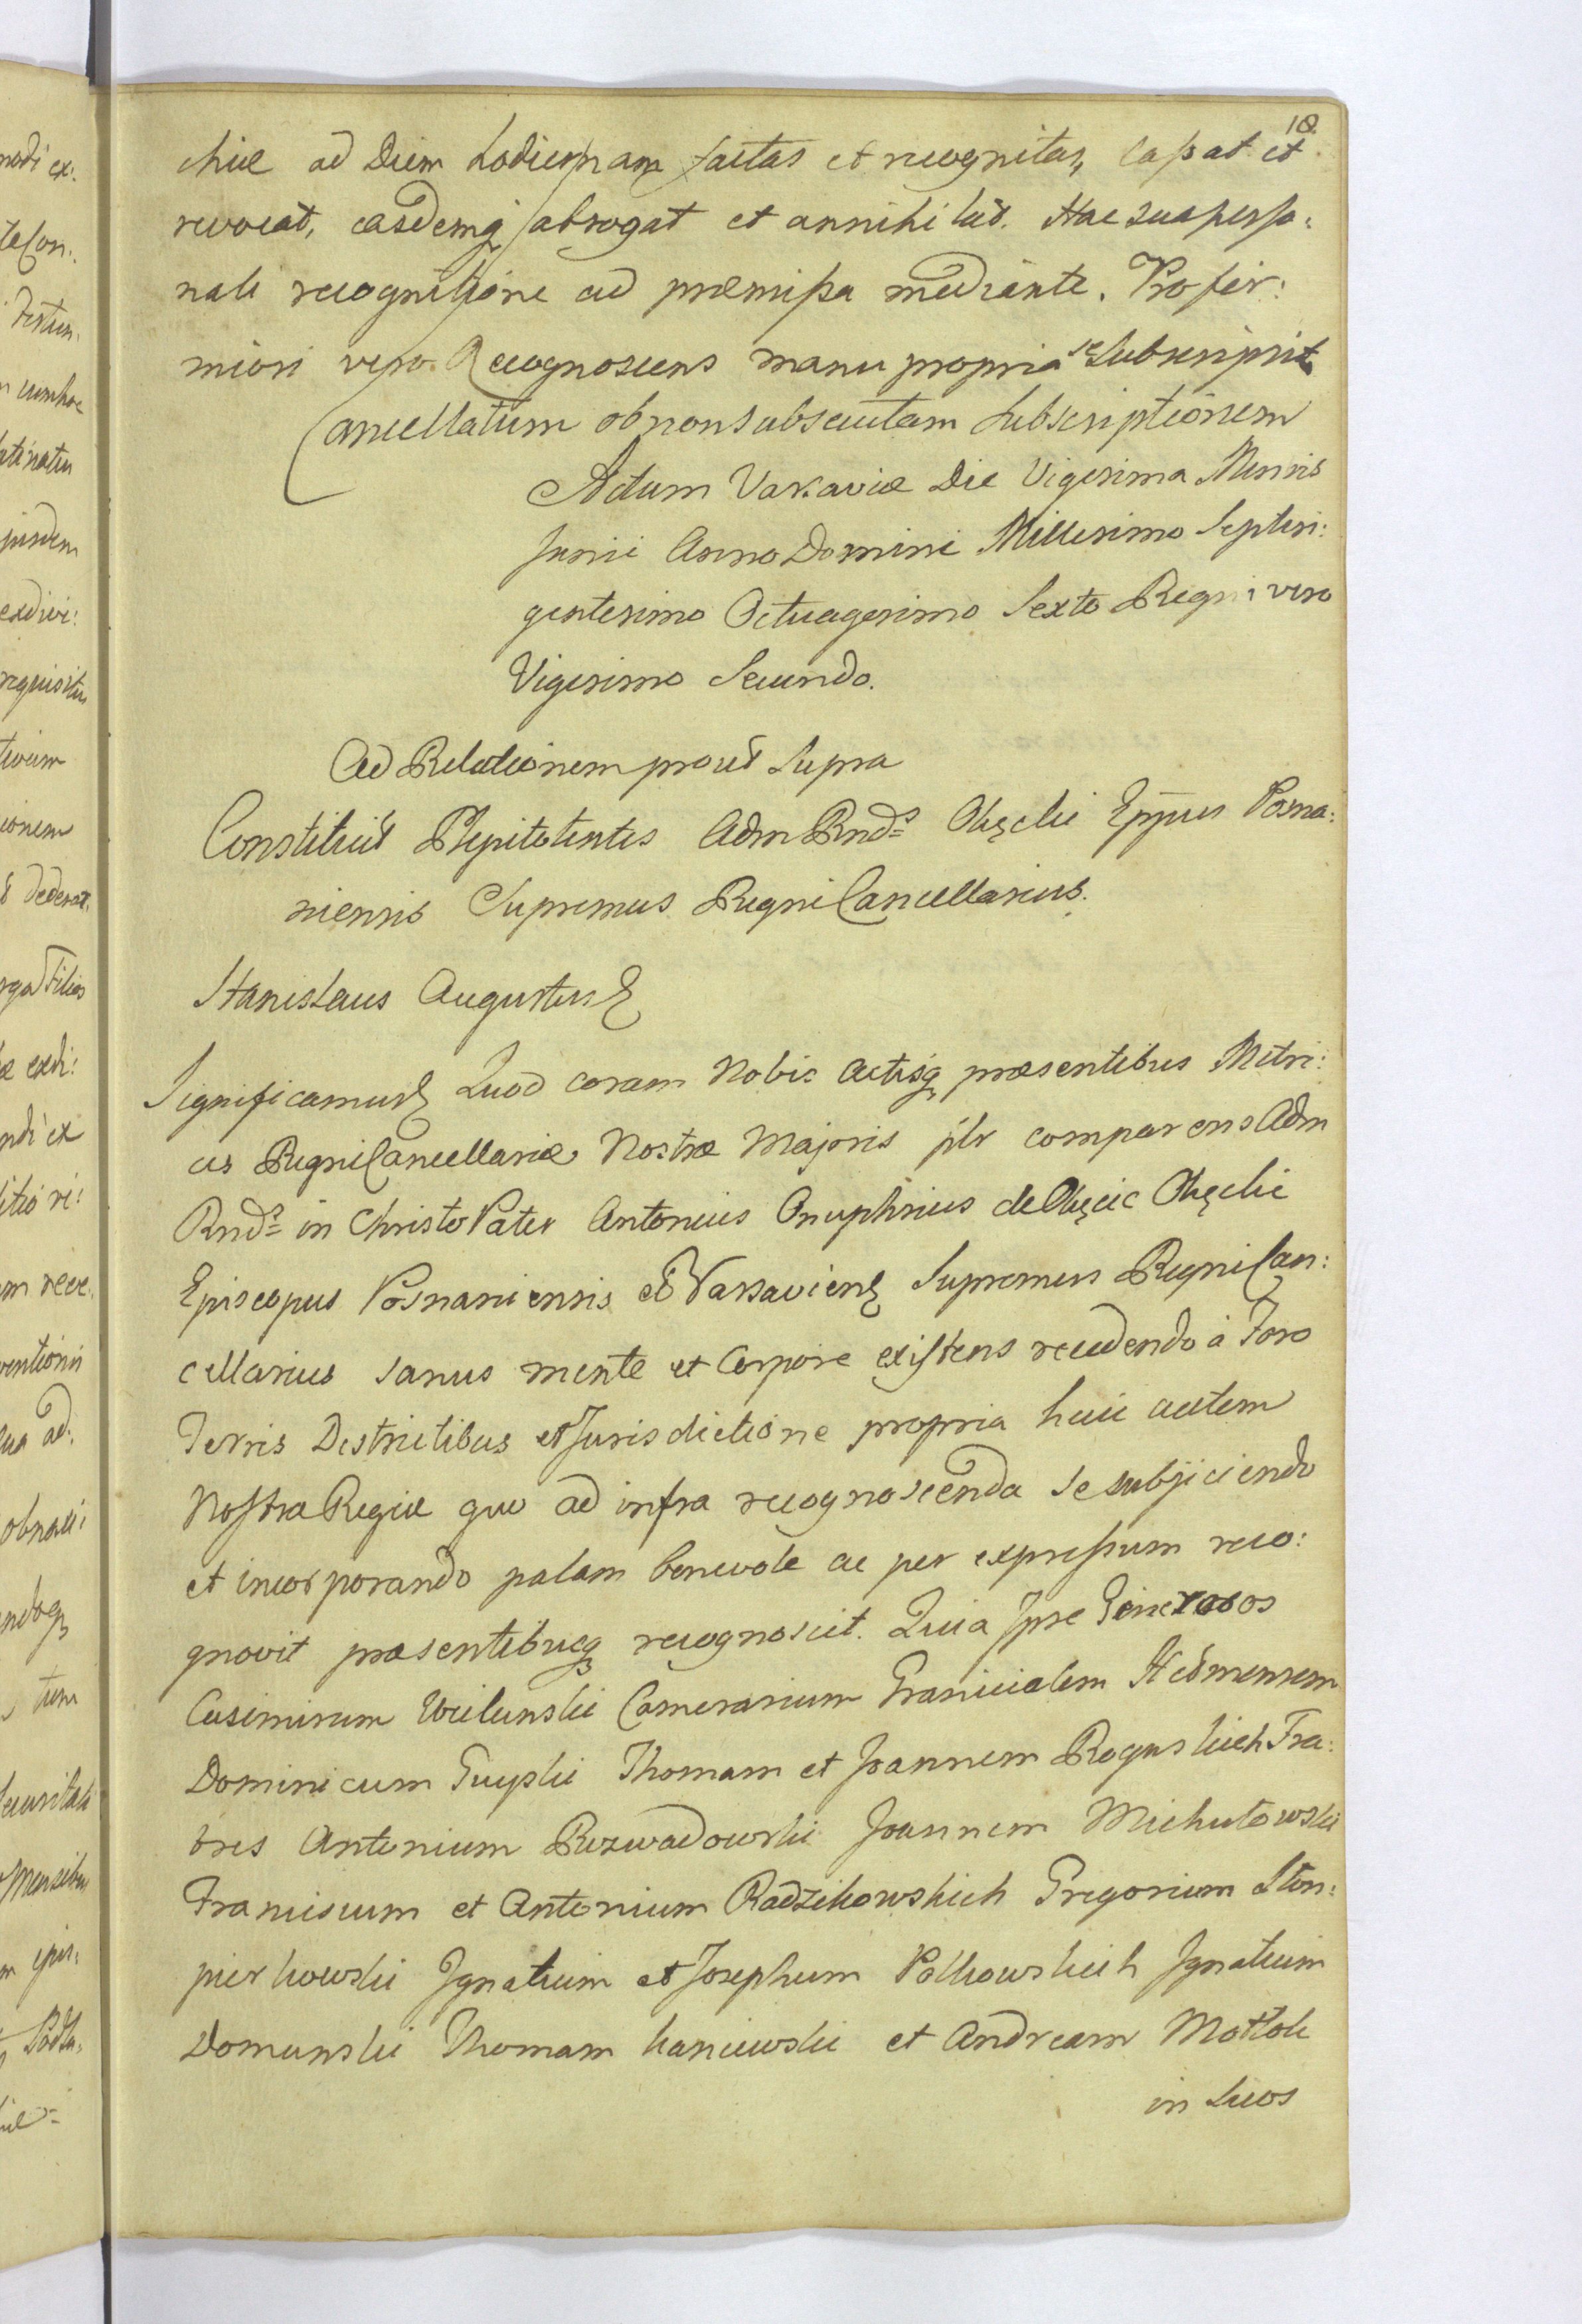 18
chiæ ad Diem hodiernam factas et recognitas, cassat et
revocat, easdemq abrogat et annihilat. Hac sua perso:
nali recognitione ad præmissa mediante. Pro fir:
miori vero Recognoscens manu propria se subscripsit
Cancellatum ob non subsecutam subscriptionem
Actum Varsaviæ Die Vigesima Mensis
Junii Anno Domini Millesimo Septin:
gentesimo Octuagesimo Sexto Regni vero
Vigesimo Secundo.
Ad Relationem prout supra
Constituit Plenipotentes Adm Rnds Okęcki Eppus Posna:
niensis Supremus Regni Cancellarius.
Stanislaus Augustus
Significamus Quod coram Nobis Actisq præsentibus Metri:
ces Regni Cancellariæ Nostræ Majoris plr comparens Adm
Rnds in Christo Pater Antonius Onuphrius de Okęcie Okęckie
Episcopus Posnaniensis et Varsaviens Supremus Regni Can:
cellarius sanus mente et Corpore existens recedendo à Foro
Terris Districtibus et Jurisdictione propria huic autem
Nostra Regiæ quo ad infra recognoscenda se subjiciendo
et incorporando palam benevole ac per expressum reco:
gnovit præsentibusq recognoscit. Quia Ipse Generosos
Casimirum Wielunski Camerarium Granicialem
Dominicum Thomam et Joannem Roguskich Fra:
tres Antonium Rozwadowski Joannem Michałowski
Franciscum et Antonium Radzikowskich Gregorium Stem:
pierkowski Ignatium et Josephum Połkowskich Ignatium
Domunski Thomam Kaniewski et Andream Motłok
in suos